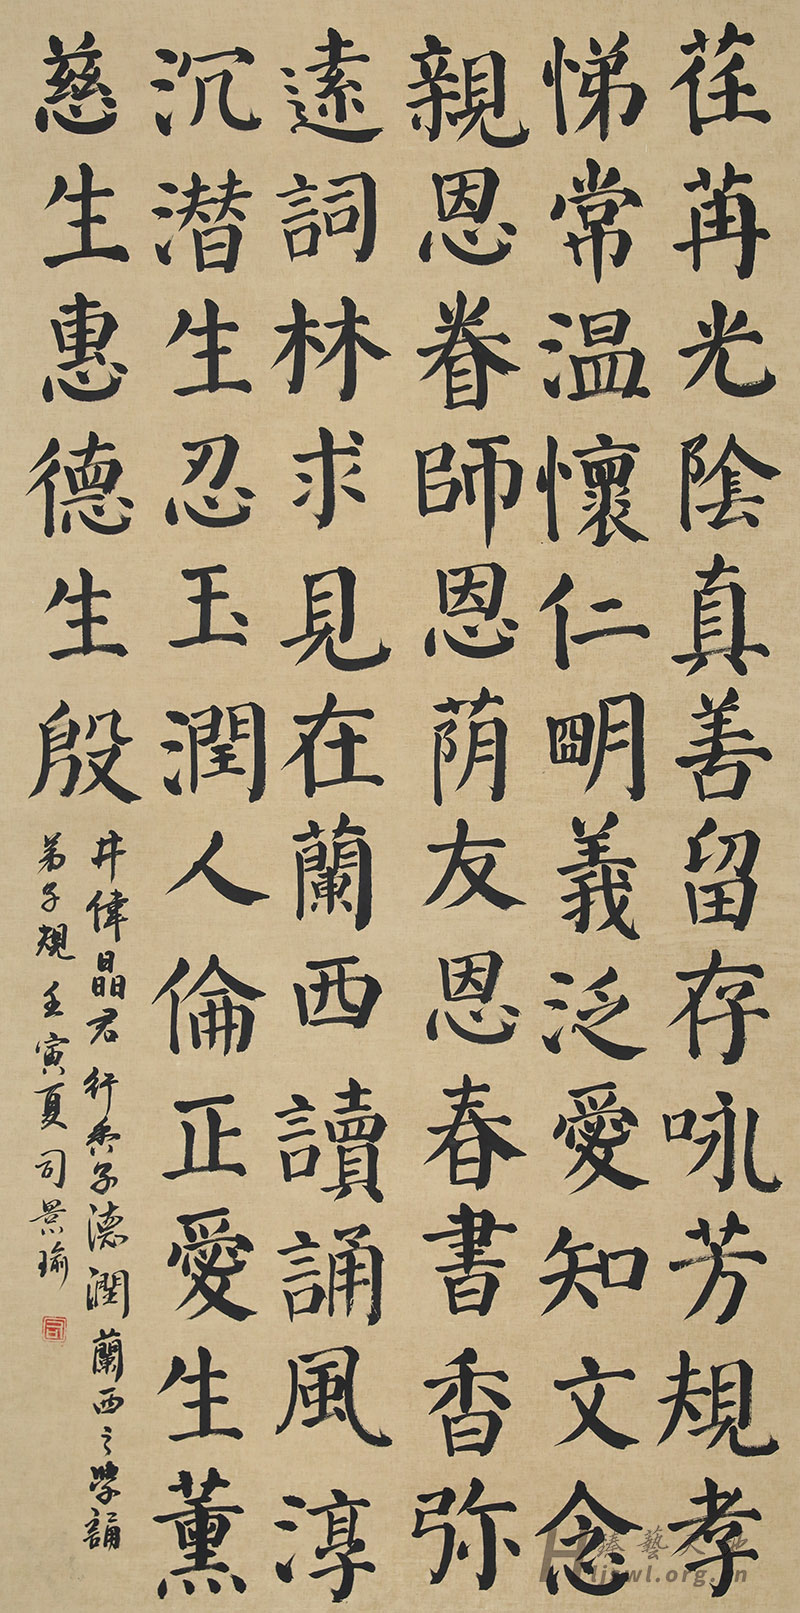 荏苒光陰真善留存咏芳規孝
悌常温懷仁朙義泛愛知文念
親恩眷師恩荫友恩春書香弥
遠詞林求見在蘭西讀誦風淳
沉潜生忍玉潤人倫正愛生薰
慈生惠德生殷
井偉晶君行香子德潤蘭西之學誦
弟子規壬寅夏司景瑜
司
臻藝天地
Hljswl.org.cn